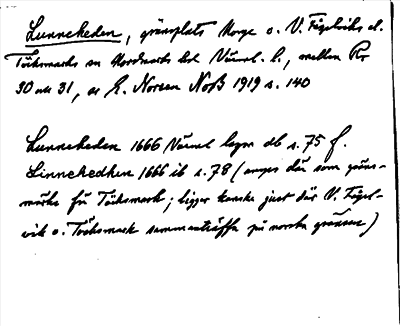 Lunnekeden, gränsplats Norge o. V. Fågelviks el.
Töcksmarks sn Nordmarks hd Värml. l., mellan Rr
30 och 31, se E. Noreen NoB 1919 s. 140
Lunnekeden 1666 Värml lagsa db s. 75 f.
Linnekedhen 1666 ib s. 78 (anges där som gräns-
märke för Töcksmark; ligger kanske just där V. Fågel-
vik o. Töcksmark sammanträffa på norska gränsen)